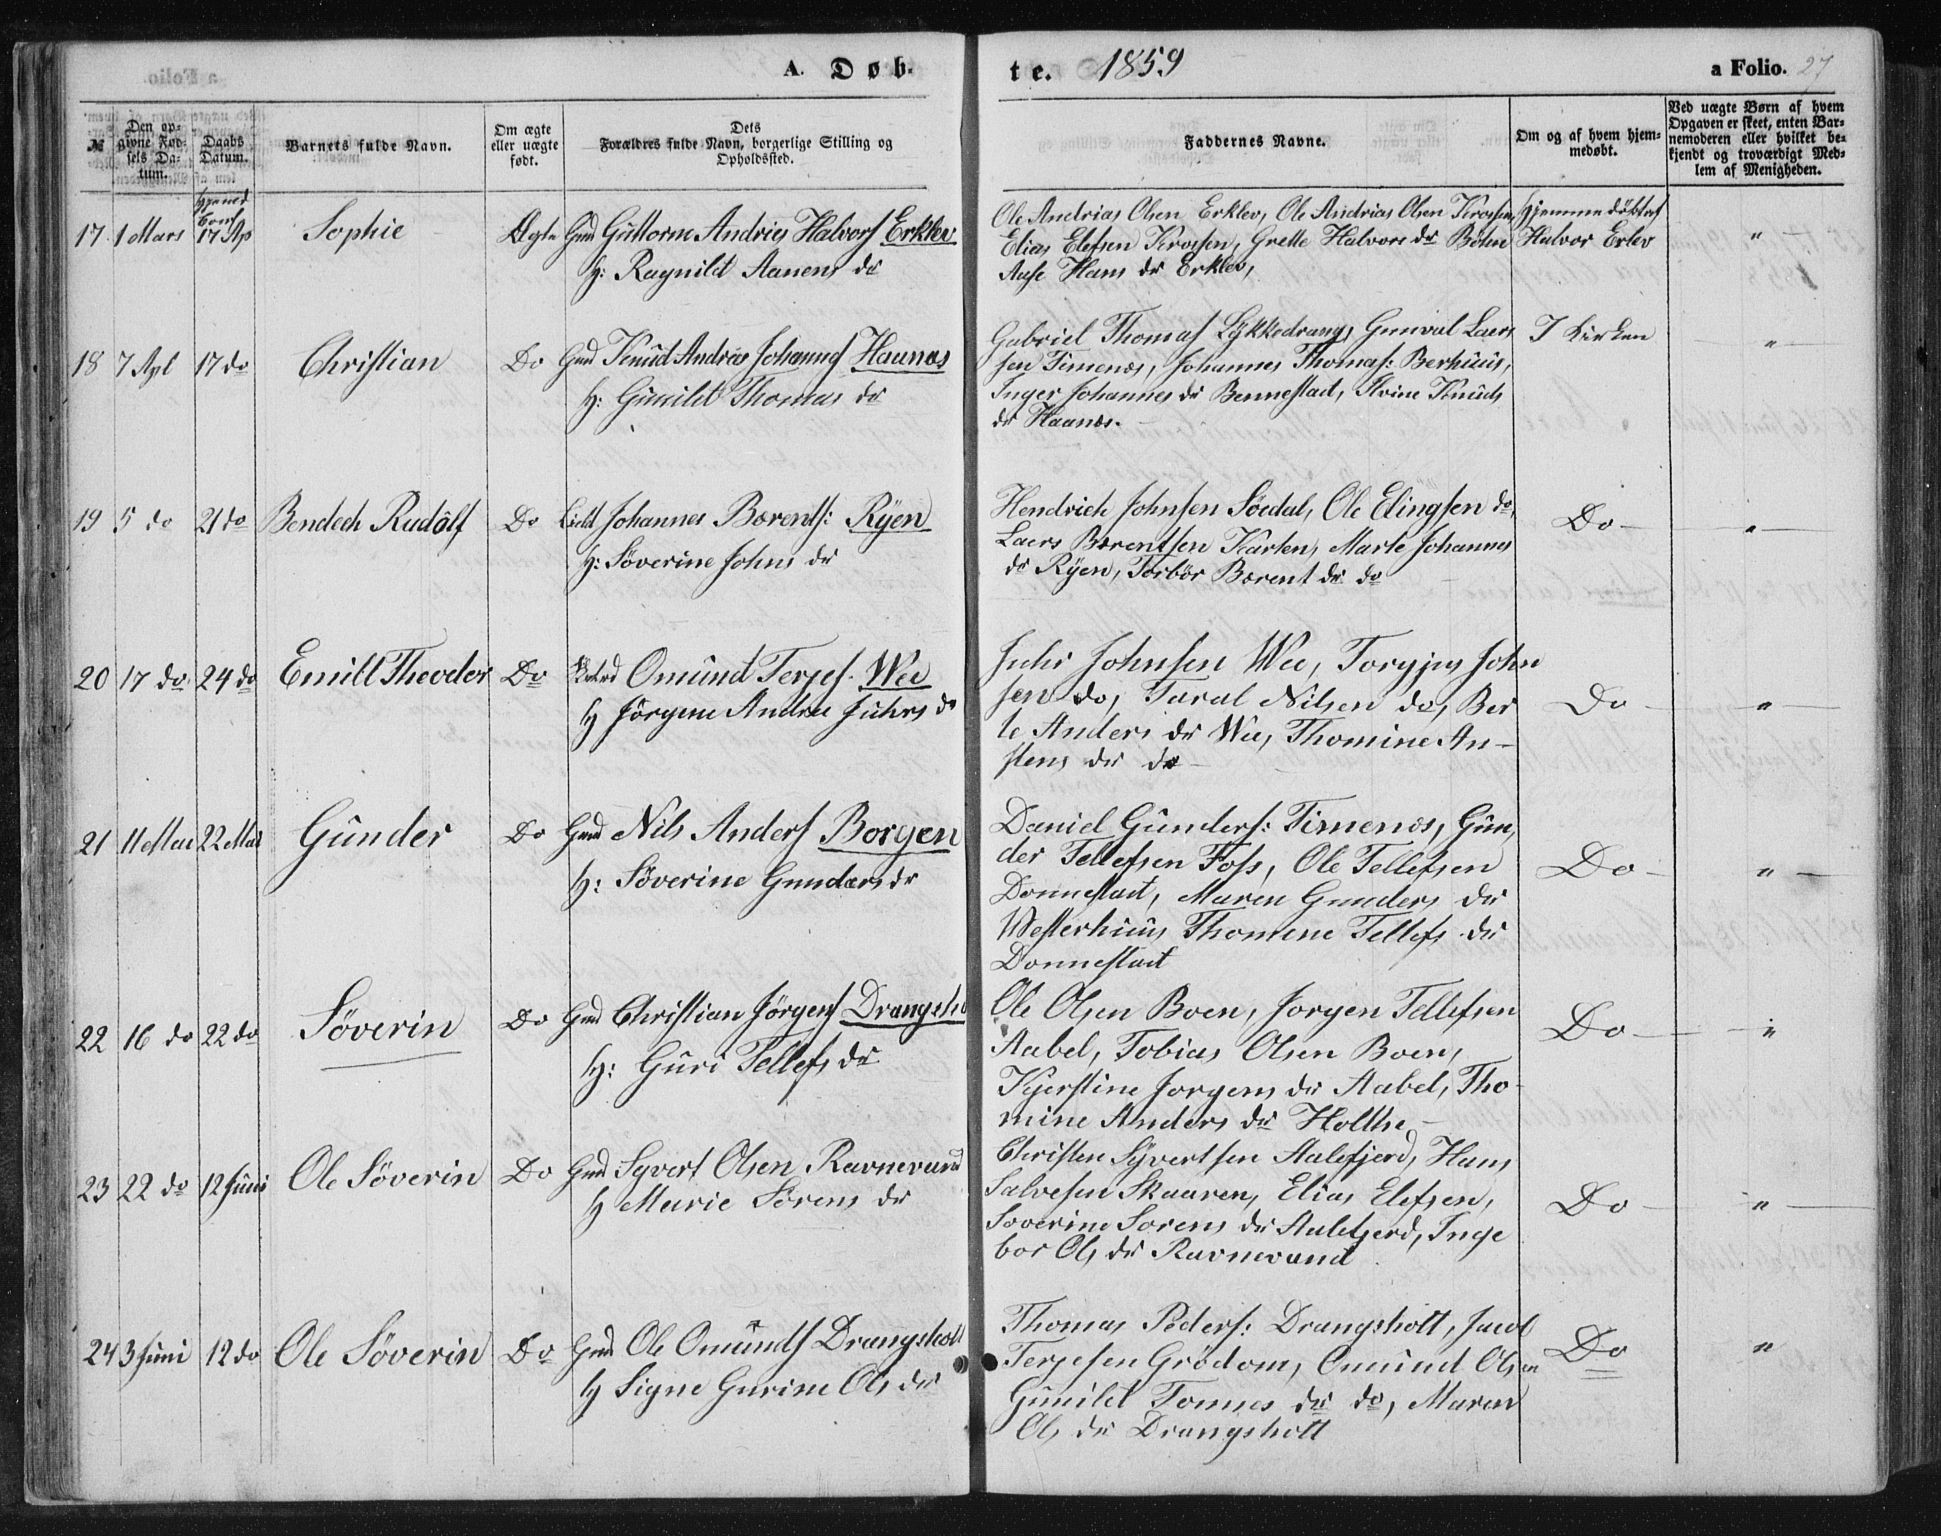 A. Døb-
te. 1859
a Folio. 27
№
Den op-
givne Fød-
sels Da-
tum.
Daabs
Datum.
Barnets fulde Navn.
Om ægte
eller uægte
født.
Dets
Forældres fulde Navn, borgerlige Stilling og
Opholdssted.
Faddernes Navne.
Om og af hvem hjem-
medøbt.
Ved uægte Børn af hvem
Opgaven er skeet, enten Bar-
nemoderen eller hvilket be-
kjendt og troværdigt Med-
lem af Menigheden.
17 1 Mars 17 Ap Sophie Ægte Gmd Guttorm Andries Halvors Erklev
H: Ragnild Aanens dr
Ole Andrias Olsen Erklev, Ole Andrias Olsen Krossen,
Elias Elefsen Krossen, Grethe Halvors dr Bøhn
Aase Hans dr Erklev,
Hjemme døbt af
Halvor Erlev "
18 7 Apl 17 do Christian Do Gmd Knud Andrias Johannes Haunæs
H: Gunild Thomas dr
Gabriel Thomas Lykkedrang, Gunval Laers
sen Timenes, Johannes Thomas: Berhuus,
Inger Johannes dr Bennestad, Alvine Knuds
dr Haanæs.
I Kirken "
19 5 do 21 do Bendech Rudolf Do Johannes Børents: Ryen
H: Söverine Johns dr
Hendrich Johnsen Sødal, Ole Elingsen do,
Laers Børentsen Karten, Marte Johannes
dr Ryen, Torbör Børent dr do
Do "
20 17 do 24 do Emill Theodor Do Omund Terjes. Wee
H Jörgine Andrea Juhrs dr
Juhr Johnsen Wee, Torgjus John
sen do, Taral Nilsen do, Ber
te Anders dr Wee, Thomine An-
stens dr do
Do "
21 11 Mai 22 Mai Günder Do Gmd Nils Anders Borgen
H: Söverine Gunders dr
Daniel Günders: Timenes, Gün
der Tellefsen Foss, Ole Tellefsen
Donnestad, Maren Gunders dr
Westerhuus Thomine Tellefs dr
Donnestad
Do "
22 16 do 22 do Söverin Do Gmd Christian Jörgens Drangsho
H: Guri Tellefs dr
Ole Olsen Boen, Jorgen Tellefsen
Aabel, Tobias Olsen Boen,
Kjerstine Jorgens dr Aabel, Tho
mine Anders dr Holthe
Do "
23 22 do 12 Juni Ole Söverin Do Gmd Syvert Olsen Ravnevand
H Marie Sörens dr
Christen Syvertsen Aalefjerd, Hans
Salvesen Skaaren, Elias Elefsen,
Soverine Sorens dr Aalefjerd, Inge
bor Ols dr Ravnevand
Do "
24 3 Juni 12 do Ole Söverin Do Gmd Ole Omunds Drangsholt
H Signe Gurine Ols dr
Thomas Peders: Drangsholt, Jacob
Terjesen Grödom, Omund Olsen
Gunild Tonnes dr do, Maren
Ols dr Drangsholt
Do "